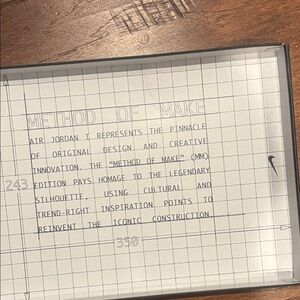 METHOD OF MAKE
AIR JORDAN I REPRESENTS THE PINNACLE
OF ORIGINAL DESIGN AND CREATIVE
INNOVATION. THE "METHOD OF MAKE" (MM)
EDITION PAYS HOMAGE TO THE LEGENDARY
SILHOUETTE, USING CULTURAL AND
TREND-RIGHT INSPIRATION POINTS TO
REINVENT THE ICONIC CONSTRUCTION.
243
350